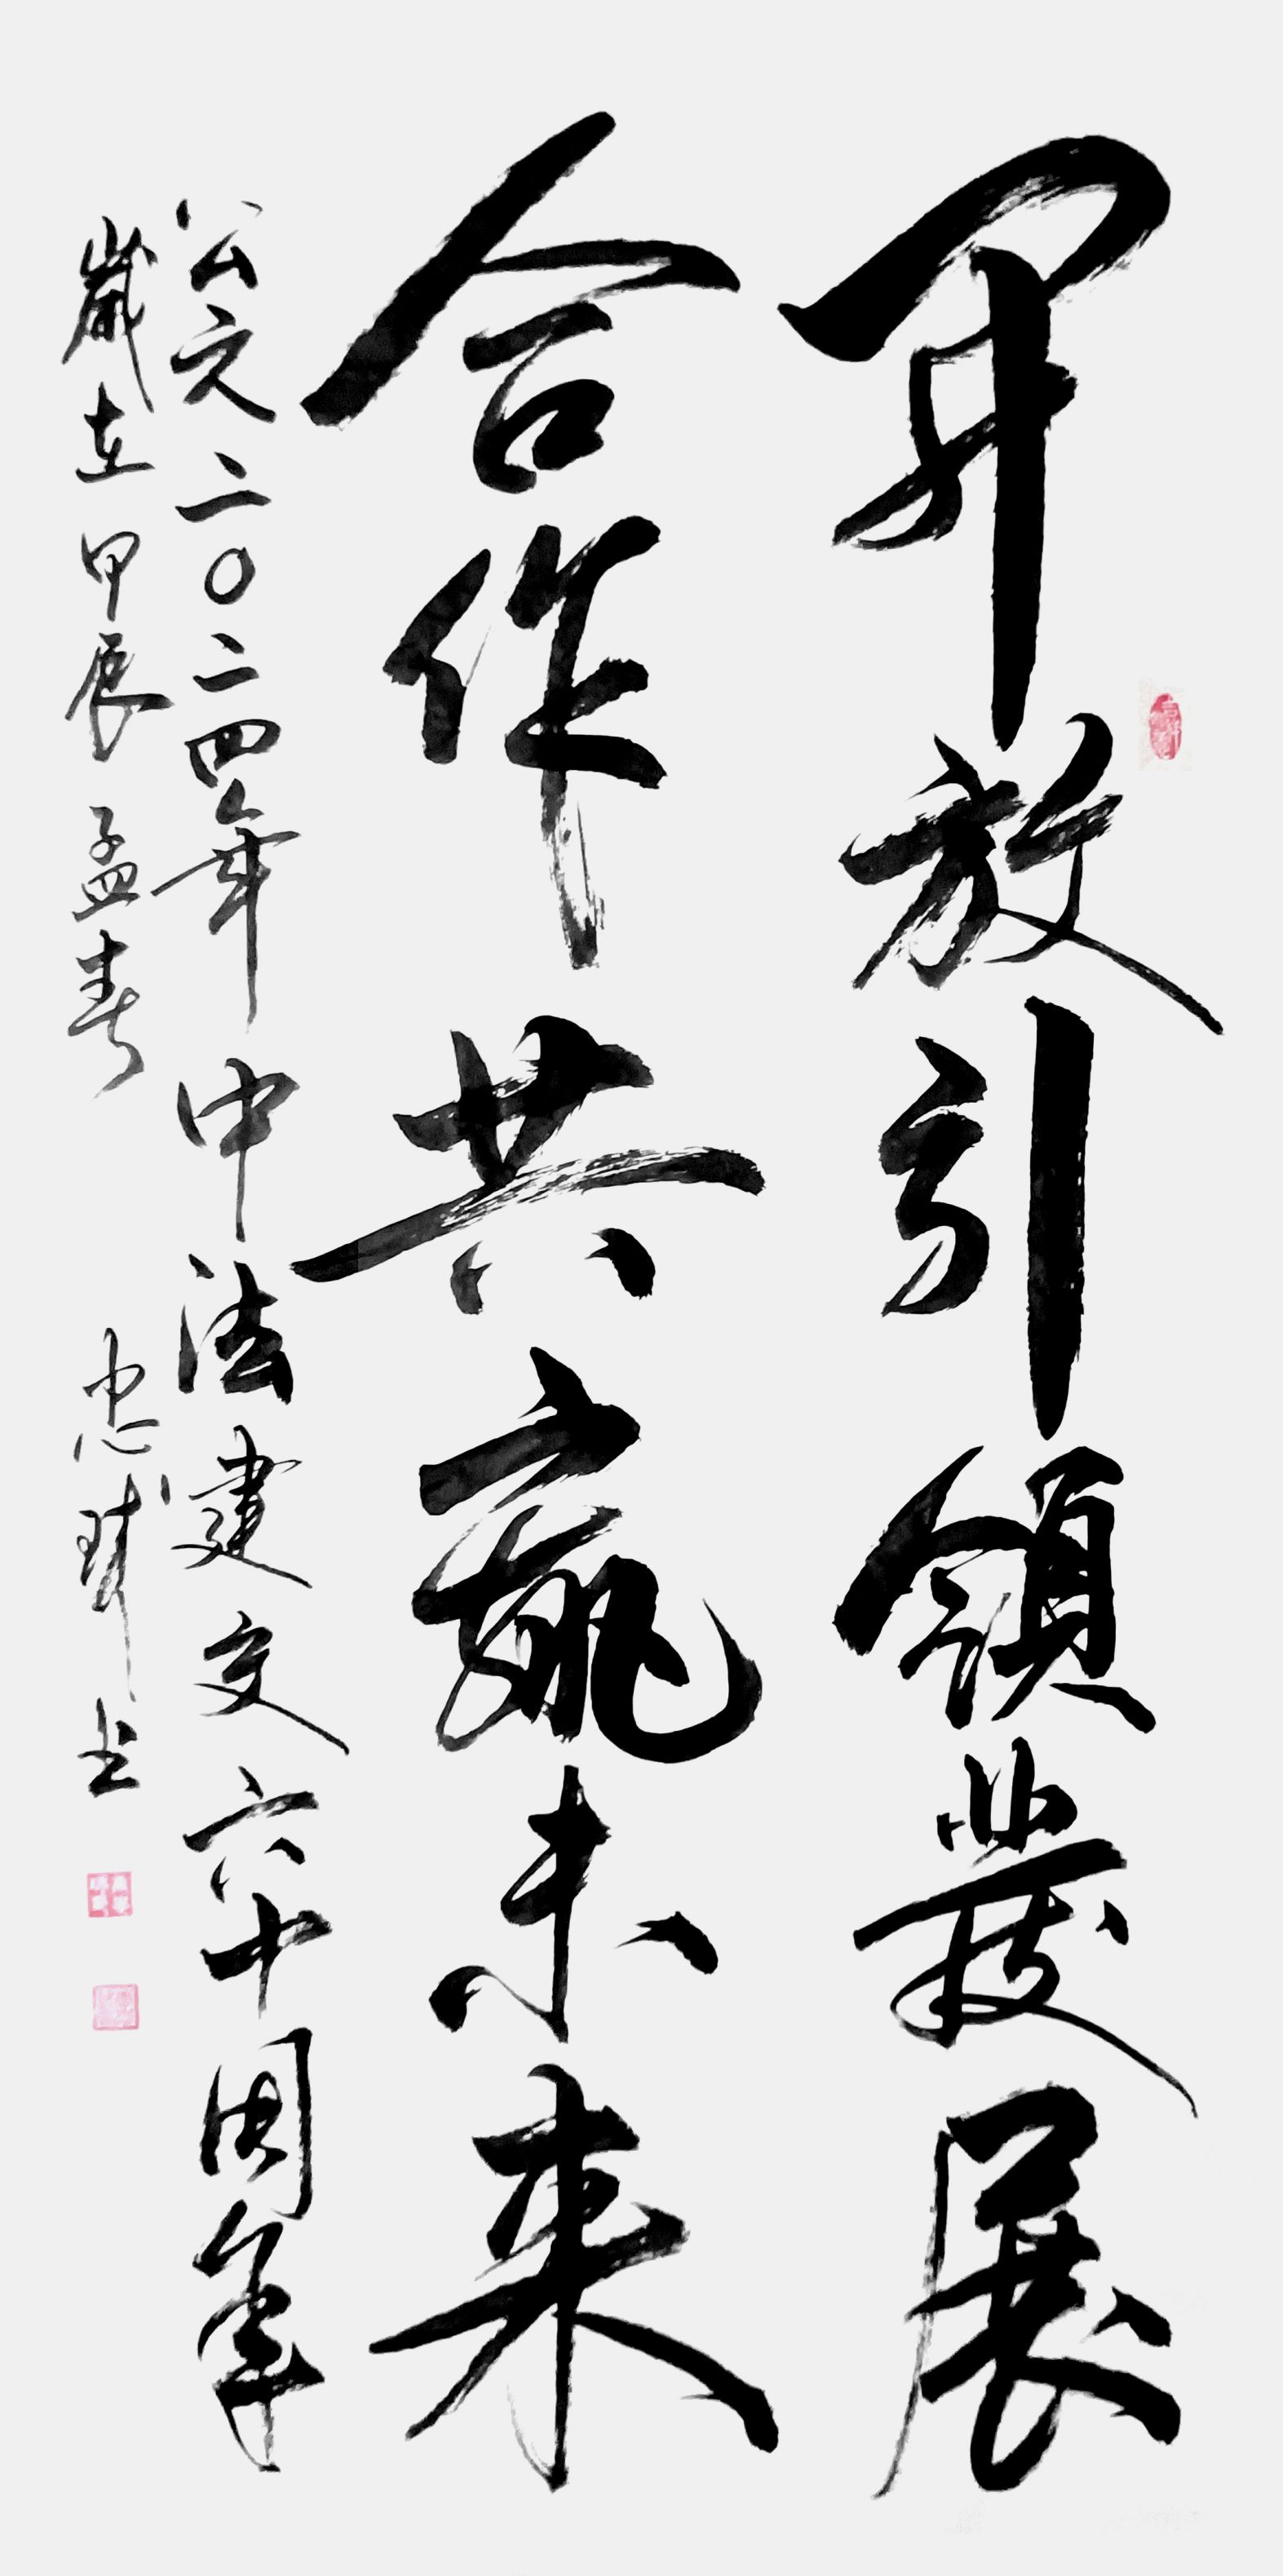 開放引領發展
合作共贏未來
公元二〇二四年中法建交六十周年
歲在甲辰孟春 忠 书